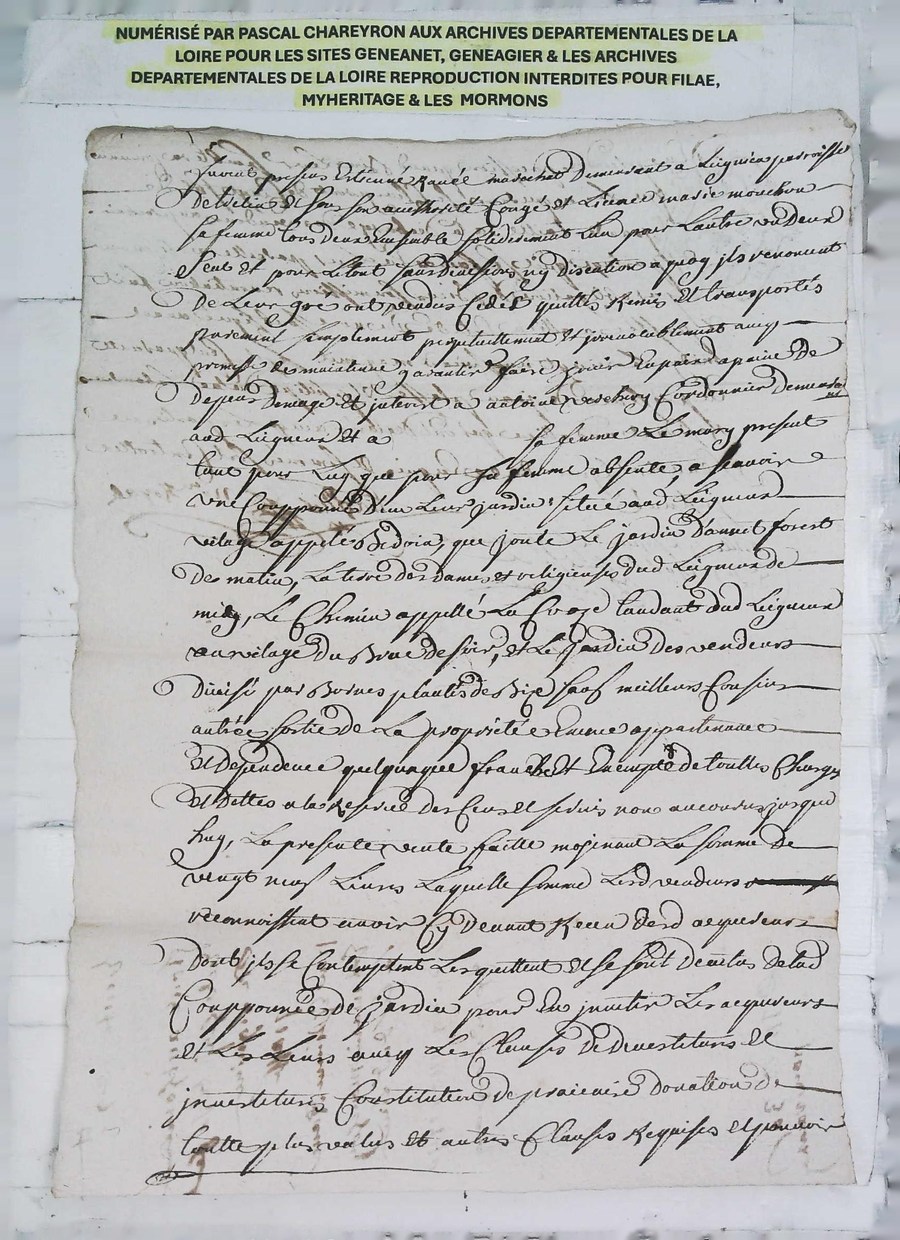 NUMÉRISÉ PAR PASCAL CHAREYRON AUX ARCHIVES DEPARTEMENTALES DE LA
LOIRE POUR LES SITES GENEANET, GENEAGIER & LES ARCHIVES
DEPARTEMENTALES DE LA LOIRE REPRODUCTION INTERDITES POUR FILAE,
MYHERITAGE & LES MORMONS
furent presens Estienne mareschal Demeurant a Leignieu parroisse
et sous son authorité Congé et Licence marie mouchou
sa femme tous deux Ensemble solidairement L'un pour Lautre un Deux
seul et pour Le tout sans division ny discution a quoy jls renoncent
De Leur gré ont vendus Cedés quittés Remis Et transportés
purement simplement perpetuellement et jrrevocablement avecq
promesse de maintenir garantir faire jouir En paix a paine de
Depens Domage Et jnterest a antoine Cordonnier Demeurant
aud Leigneux Et a sa femme Le mary present
tant pour Luy que pour sa femme absente, a sçavoir
une Coupponné D'un Leur jardin situé aud Leigneux
vilage appellé Bedoin, que joute Le jardin D'annet forest
De matin, La terre des Dames et religieuses dud Leigneux de
midy, Le Chemin appellé La tandant dud Leigneux
au vilage du de soir, et Le jardin des vendeurs
Divisé par Bornes plantés de Bize sauf meilleurs Confins
avec Entrée sortie de La propriété Et appartenance
Et dependence quelquonque franche Et Exempte de touttes Charges
Et Dettes a La Reserve des Cens et servis non jusque
huy, La presente vente faitte mojenant La somme de
vingt neuf Livres Laquelle somme Lesd vendeurs
reconnoissent avoir Cy Devant Receu desd acqureurs
Dont jls se Contemptent Les quittent Et se sont Demetus De lad
Coupponnée de jardin pour En jnvestir Les acqureurs
Et Les Leurs avecq Les Clauses De Devestiture et
jnvestiture Constitution de precaire Donation de
toutte plus values Et autres Clauses Requises et pouvoir